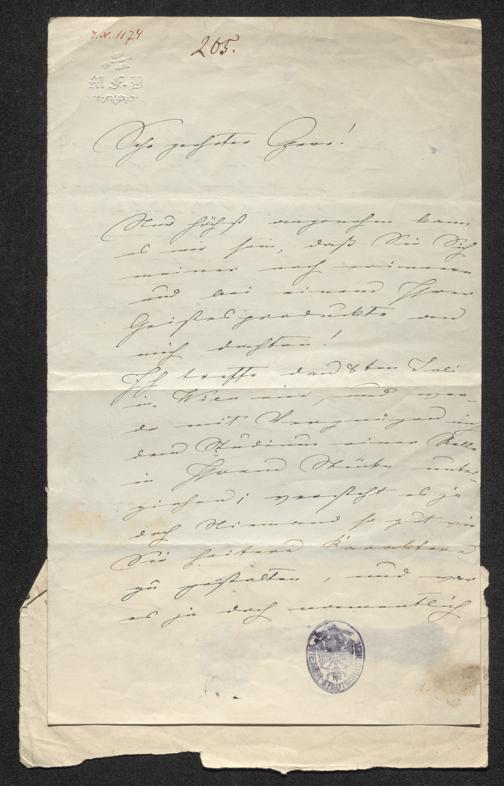 I. N. 1174
205.
M. F. B.
Sehr geehrter Herr!
Nur höchst angenehm kann
es mir sein, daß Sie Sich
meiner noch erinnern
und bei einem Ihrer
Geistesprodukte an
mich dachten!
Ich treffe den 8ten Juli
in Wien ein, und wer-
de mit Vergnügen mich
dem Studium einer Rolle
in Ihrem Stücke unter-
ziehen; versteht es ja
doch Niemand so gut wie
Sie heitere Karaktere
zu gestalten, und war
es ja doch namentlich